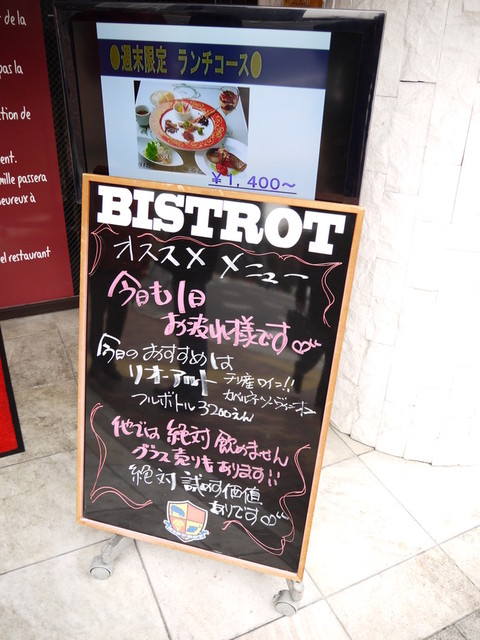 t de la
pas la
ction de
ent.
mille passera
eureux à
el restaurant
●週末限定 ランチコース●
￥1,400～
BISTROT
オススメ メニュー
今日も1日
お疲れ様です
今日のおすすめは
リオ・アルト チリ産ワイン!!
フルボトル 3200えん カベルネ・ソーヴィニオン
他では絶対飲めません
グラス売りもあります!!
絶対 試す価値
ありです